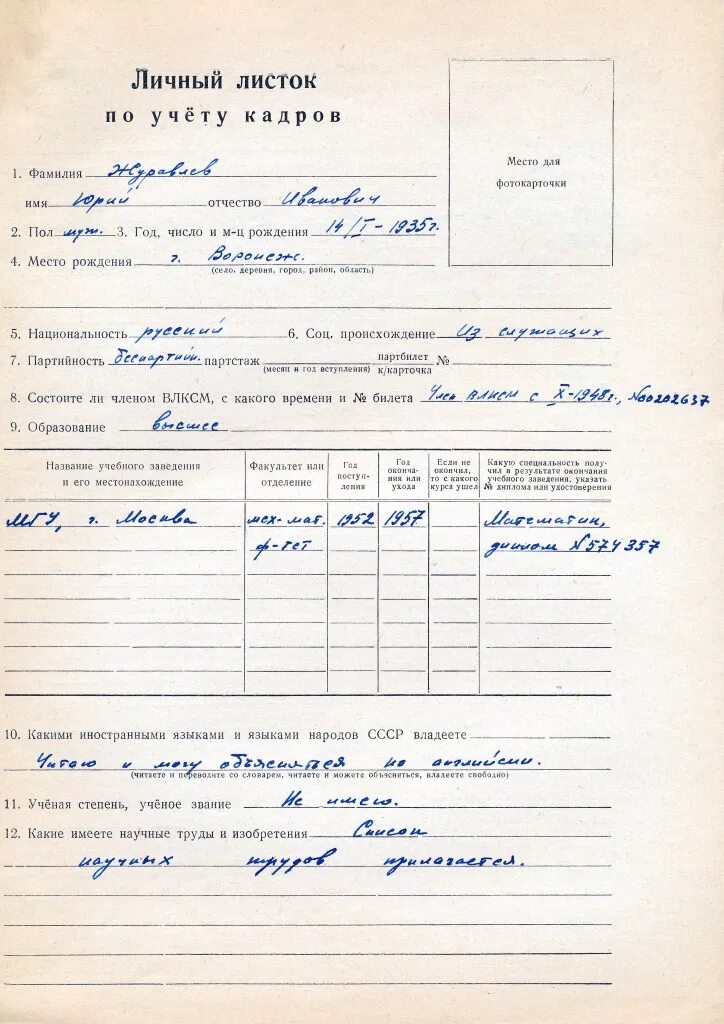 Личный листок
по учёту кадров
Место для
фотокарточки
1. Фамилия Журавлев
имя Юрий отчество Иванович
2. Пол муж. 3. Год, число и м-ц рождения 14/I-1935г.
4. Место рождения г. Воронеж.
(село, деревня, город, район, область)
5. Национальность русский 6. Соц. происхождение из служащих
7. Партийность беспартийн. партстаж партбилет № к/карточка
(месяц и год вступления)
8. Состоите ли членом ВЛКСМ, с какого времени и № билета Член ВЛКСМ с X-1948г., №00202637
9. Образование высшее
Название учебного заведения и его местонахождение
Факультет или отделение
Год поступ-ления
Год оконча-ния или ухода
Если не окончил, то с какого курса ушел
Какую специальность полу-чил в результате окончания учебного заведения, указать № диплома или удостоверения
МГУ, г. Москва мех-мат. 1952 1957 Математик,
ф-тет диплом №574357
10. Какими иностранными языками и языками народов СССР владеете
Читаю и могу объясняться по английски.
(читаете и переводите со словарем, читаете и можете объясняться, владеете свободно)
11. Учёная степень, учёное звание Не имею.
12. Какие имеете научные труды и изобретения Список
научных трудов прилагается.